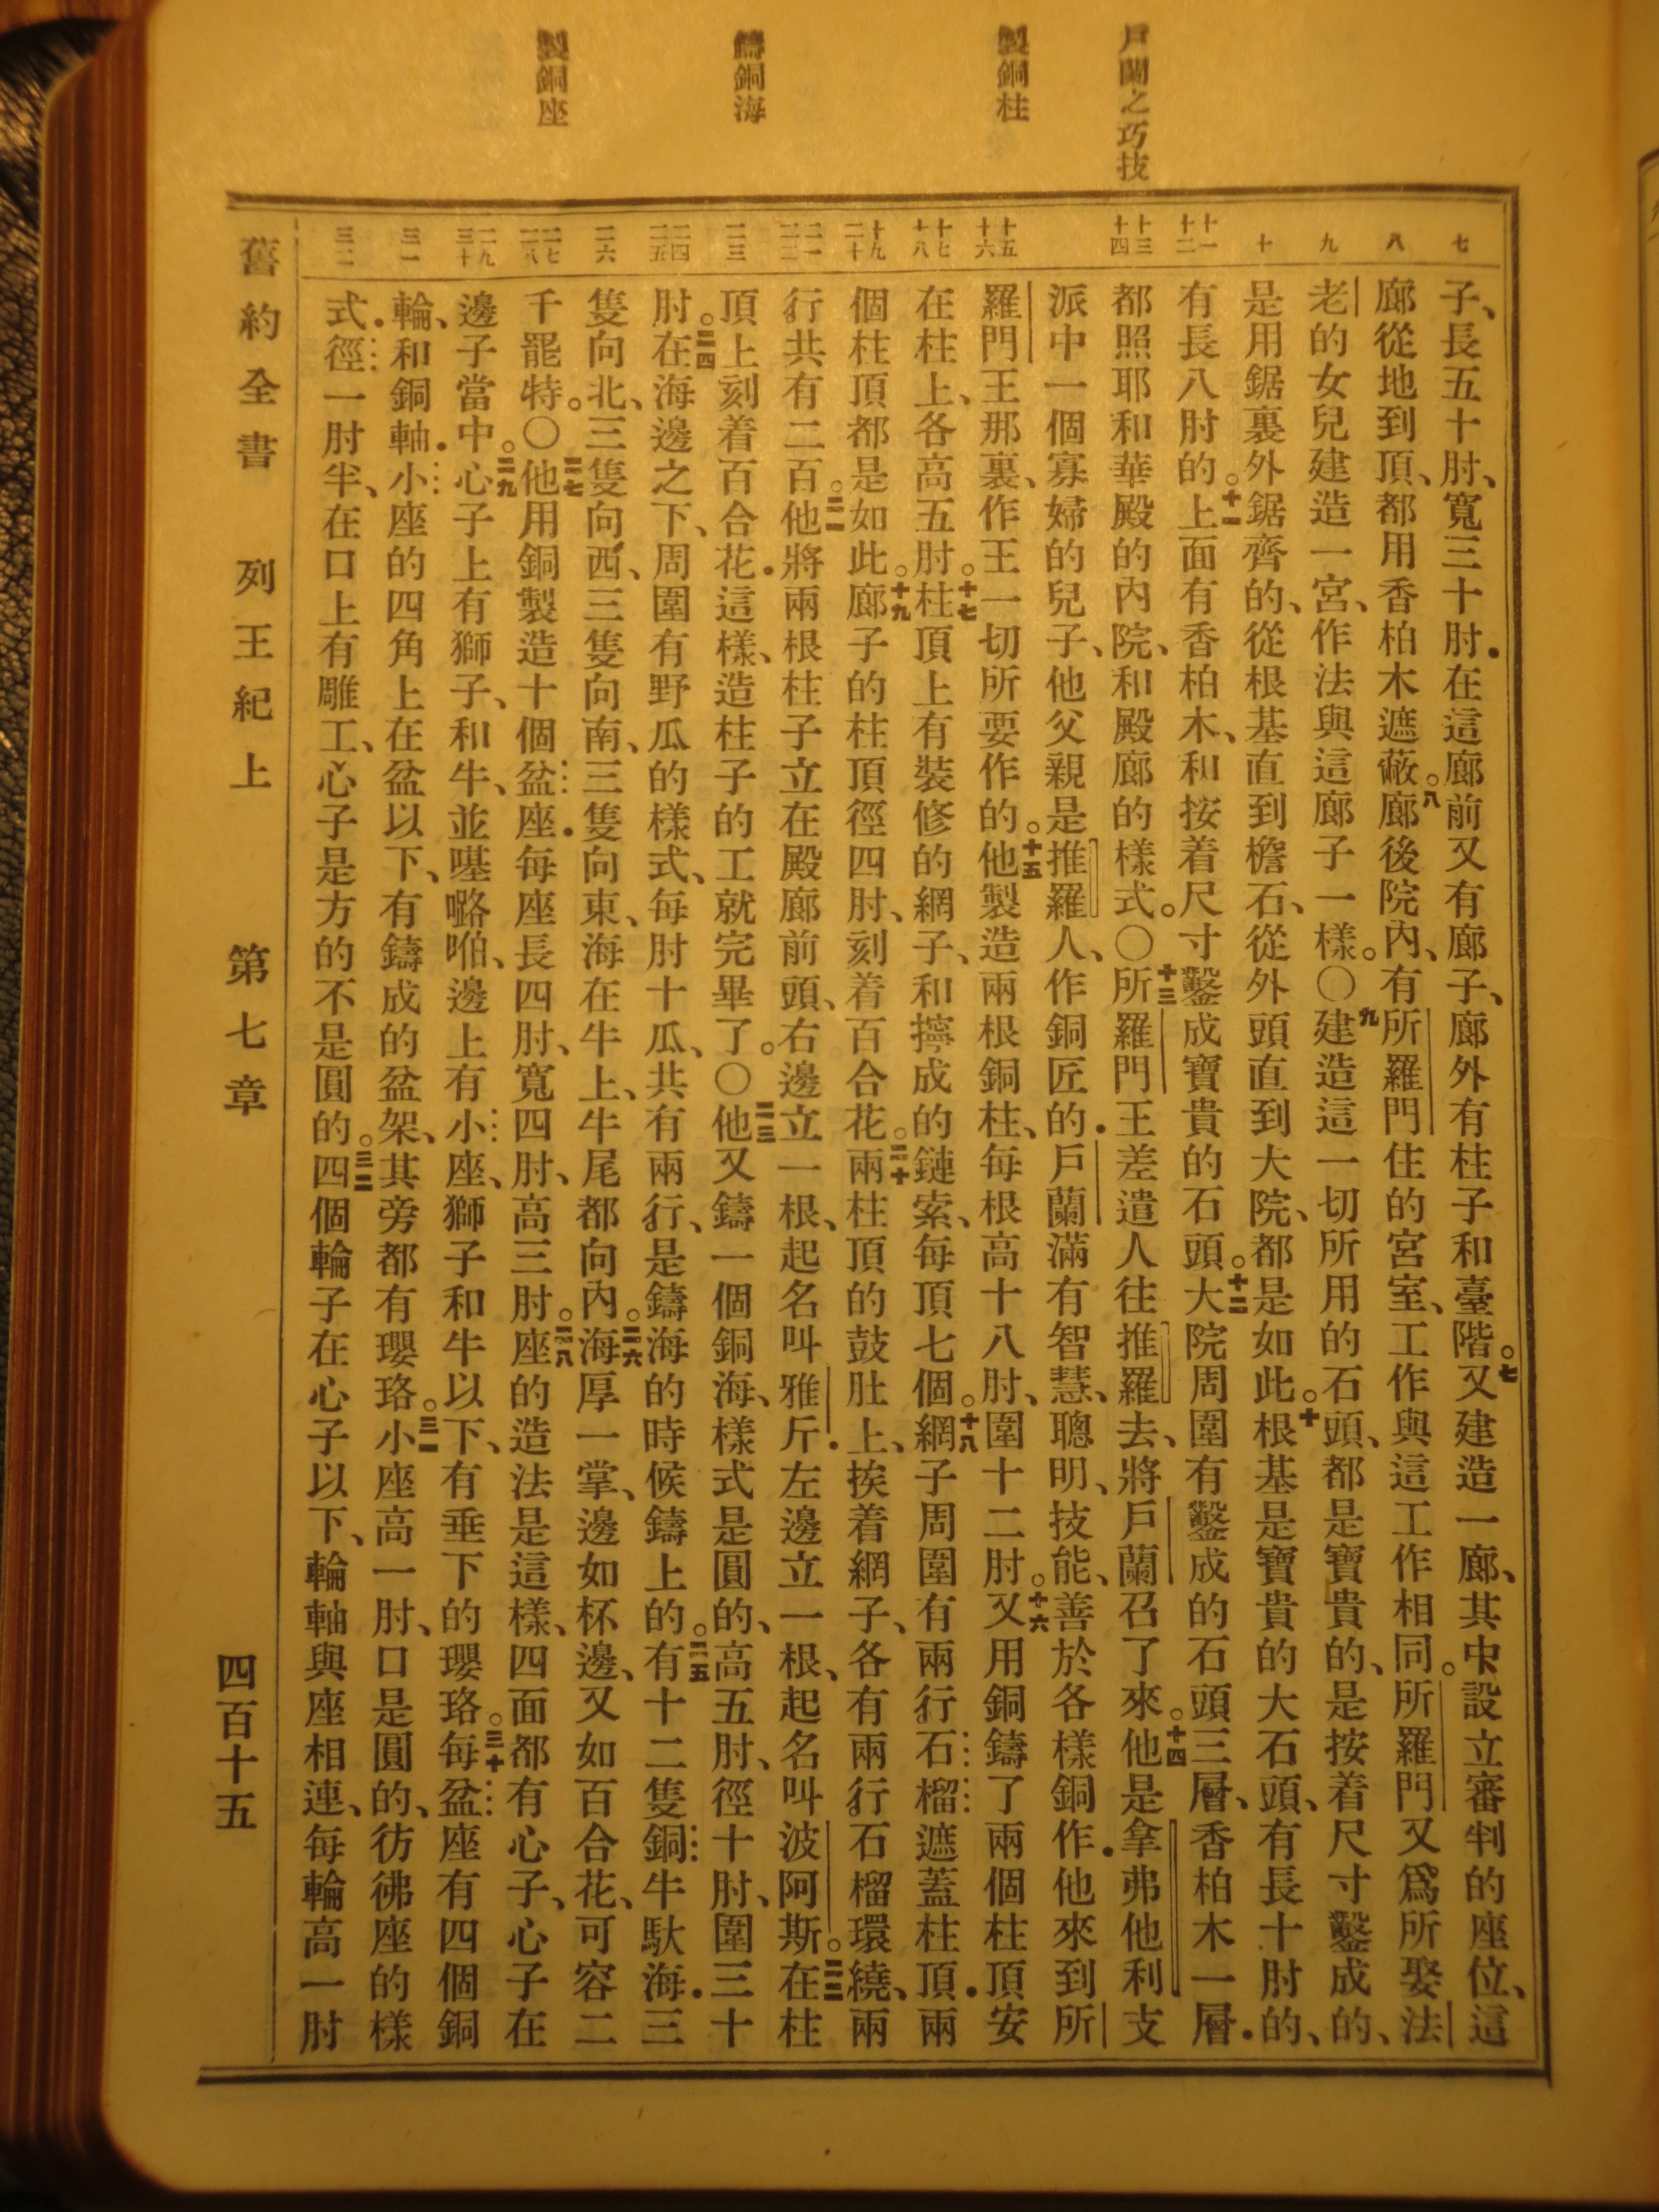 戶蘭之巧技
製銅柱
鑄銅海
製銅座
七
八
九
十
十一
十二
十三
十四
十五
十六
十七
十八
十九
二十
二一
二二
二三
二四
二五
二六
二七
二八
二九
三十
三一
三二
子、長五十肘、寬三十肘．在這廊前又有廊子、廊外有柱子和臺階。七又建造一廊、其中設立審判的座位、這
廊從地到頂、都用香柏木遮蔽。八廊後院內、有所羅門住的宮室、工作與這工作相同。所羅門又爲所娶法
老的女兒建造一宮、作法與這廊子一樣。〇九建造這一切所用的石頭、都是寶貴的、是按着尺寸鑿成的、
是用鋸裏外鋸齊的、從根基直到檐石、從外頭直到大院、都是如此。十根基是寶貴的大石頭、有長十肘的、
有長八肘的。十一上面有香柏木、和按着尺寸鑿成寶貴的石頭。十二大院周圍有鑿成的石頭三層、香柏木一層．
都照耶和華殿的內院、和殿廊的樣式。〇十三所羅門王差遣人往推羅去、將戶蘭召了來。十四他是拿弗他利支
派中一個寡婦的兒子、他父親是推羅人、作銅匠的．戶蘭滿有智慧、聰明、技能、善於各樣銅作．他來到所
羅門王那裏、作王一切所要作的。十五他製造兩根銅柱、每根高十八肘、圍十二肘。十六又用銅鑄了兩個柱頂安
在柱上、各高五肘。十七柱頂上有裝修的網子、和擰成的鏈索、每頂七個。十八網子周圍有兩行石榴遮蓋柱頂．兩
個柱頂都是如此。十九廊子的柱頂徑四肘、刻着百合花。二十兩柱頂的鼓肚上、挨着網子、各有兩行石榴環繞、兩
行共有二百。二一他將兩根柱子立在殿廊前頭、右邊立一根、起名叫雅斤．左邊立一根、起名叫波阿斯。二二在柱
頂上刻着百合花．這樣、造柱子的工就完畢了。〇二三他又鑄一個銅海、樣式是圓的、高五肘、徑十肘、圍三十
肘。二四在海邊之下、周圍有野瓜的樣式、每肘十瓜、共有兩行、是鑄海的時候鑄上的。二五有十二隻銅牛馱海．三
隻向北、三隻向西、三隻向南、三隻向東、海在牛上、牛尾都向內。二六海厚一掌、邊如杯邊、又如百合花、可容二
千罷特。〇二七他用銅製造十個盆座．每座長四肘、寬四肘、高三肘。二八座的造法是這樣、四面都有心子、心子在
邊子當中。二九心子上有獅子、和牛、並𠼻𡀔啪、邊上有小座、獅子和牛以下、有垂下的瓔珞。三十每盆座有四個銅
輪、和銅軸．小座的四角上在盆以下、有鑄成的盆架、其旁都有瓔珞。三一小座高一肘、口是圓的、彷彿座的樣
式．徑一肘半、在口上有雕工、心子是方的不是圓的。三二四個輪子在心子以下、輪軸與座相連、每輪高一肘
舊約全書　列王紀上　第七章　四百十五